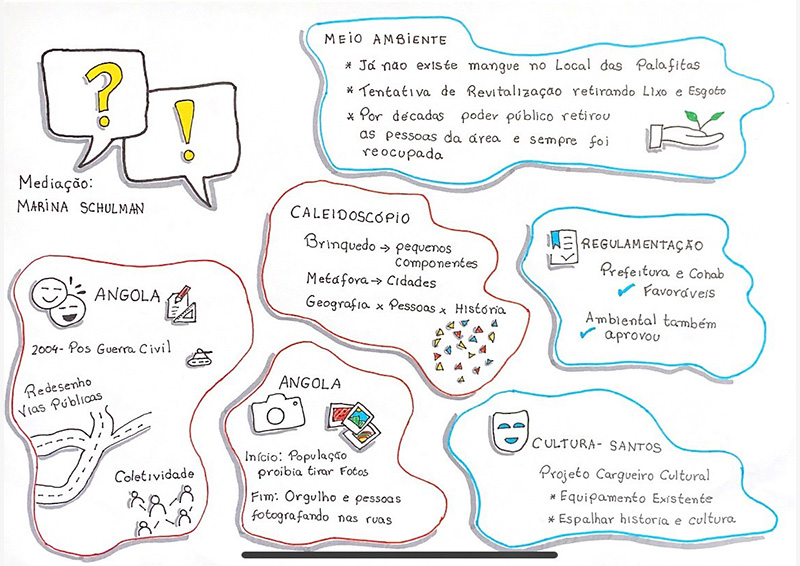 ?
!
Mediação:
MARINA SCHULMAN
MEIO AMBIENTE
* Já não existe mangue no Local das Palafitas
* Tentativa de Revitalização retirando Lixo e Esgoto
* Por décadas poder público retirou
as pessoas da área e sempre foi
reocupada
CALEIDOSCÓPIO
Brinquedo → pequenos
componentes
Metáfora → Cidades
Geografia x Pessoas x História
REGULAMENTAÇÃO
Prefeitura e Cohab
✓ Favoráveis
Ambiental também
✓ aprovou
ANGOLA
2004- Pos Guerra Civil
Redesenho
Vias Públicas
Coletividade
ANGOLA
Início: População
proibia tirar Fotos
Fim: Orgulho e pessoas
fotografando nas ruas
CULTURA- SANTOS
Projeto Cargueiro Cultural
* Equipamento Existente
* Espalhar historia e cultura